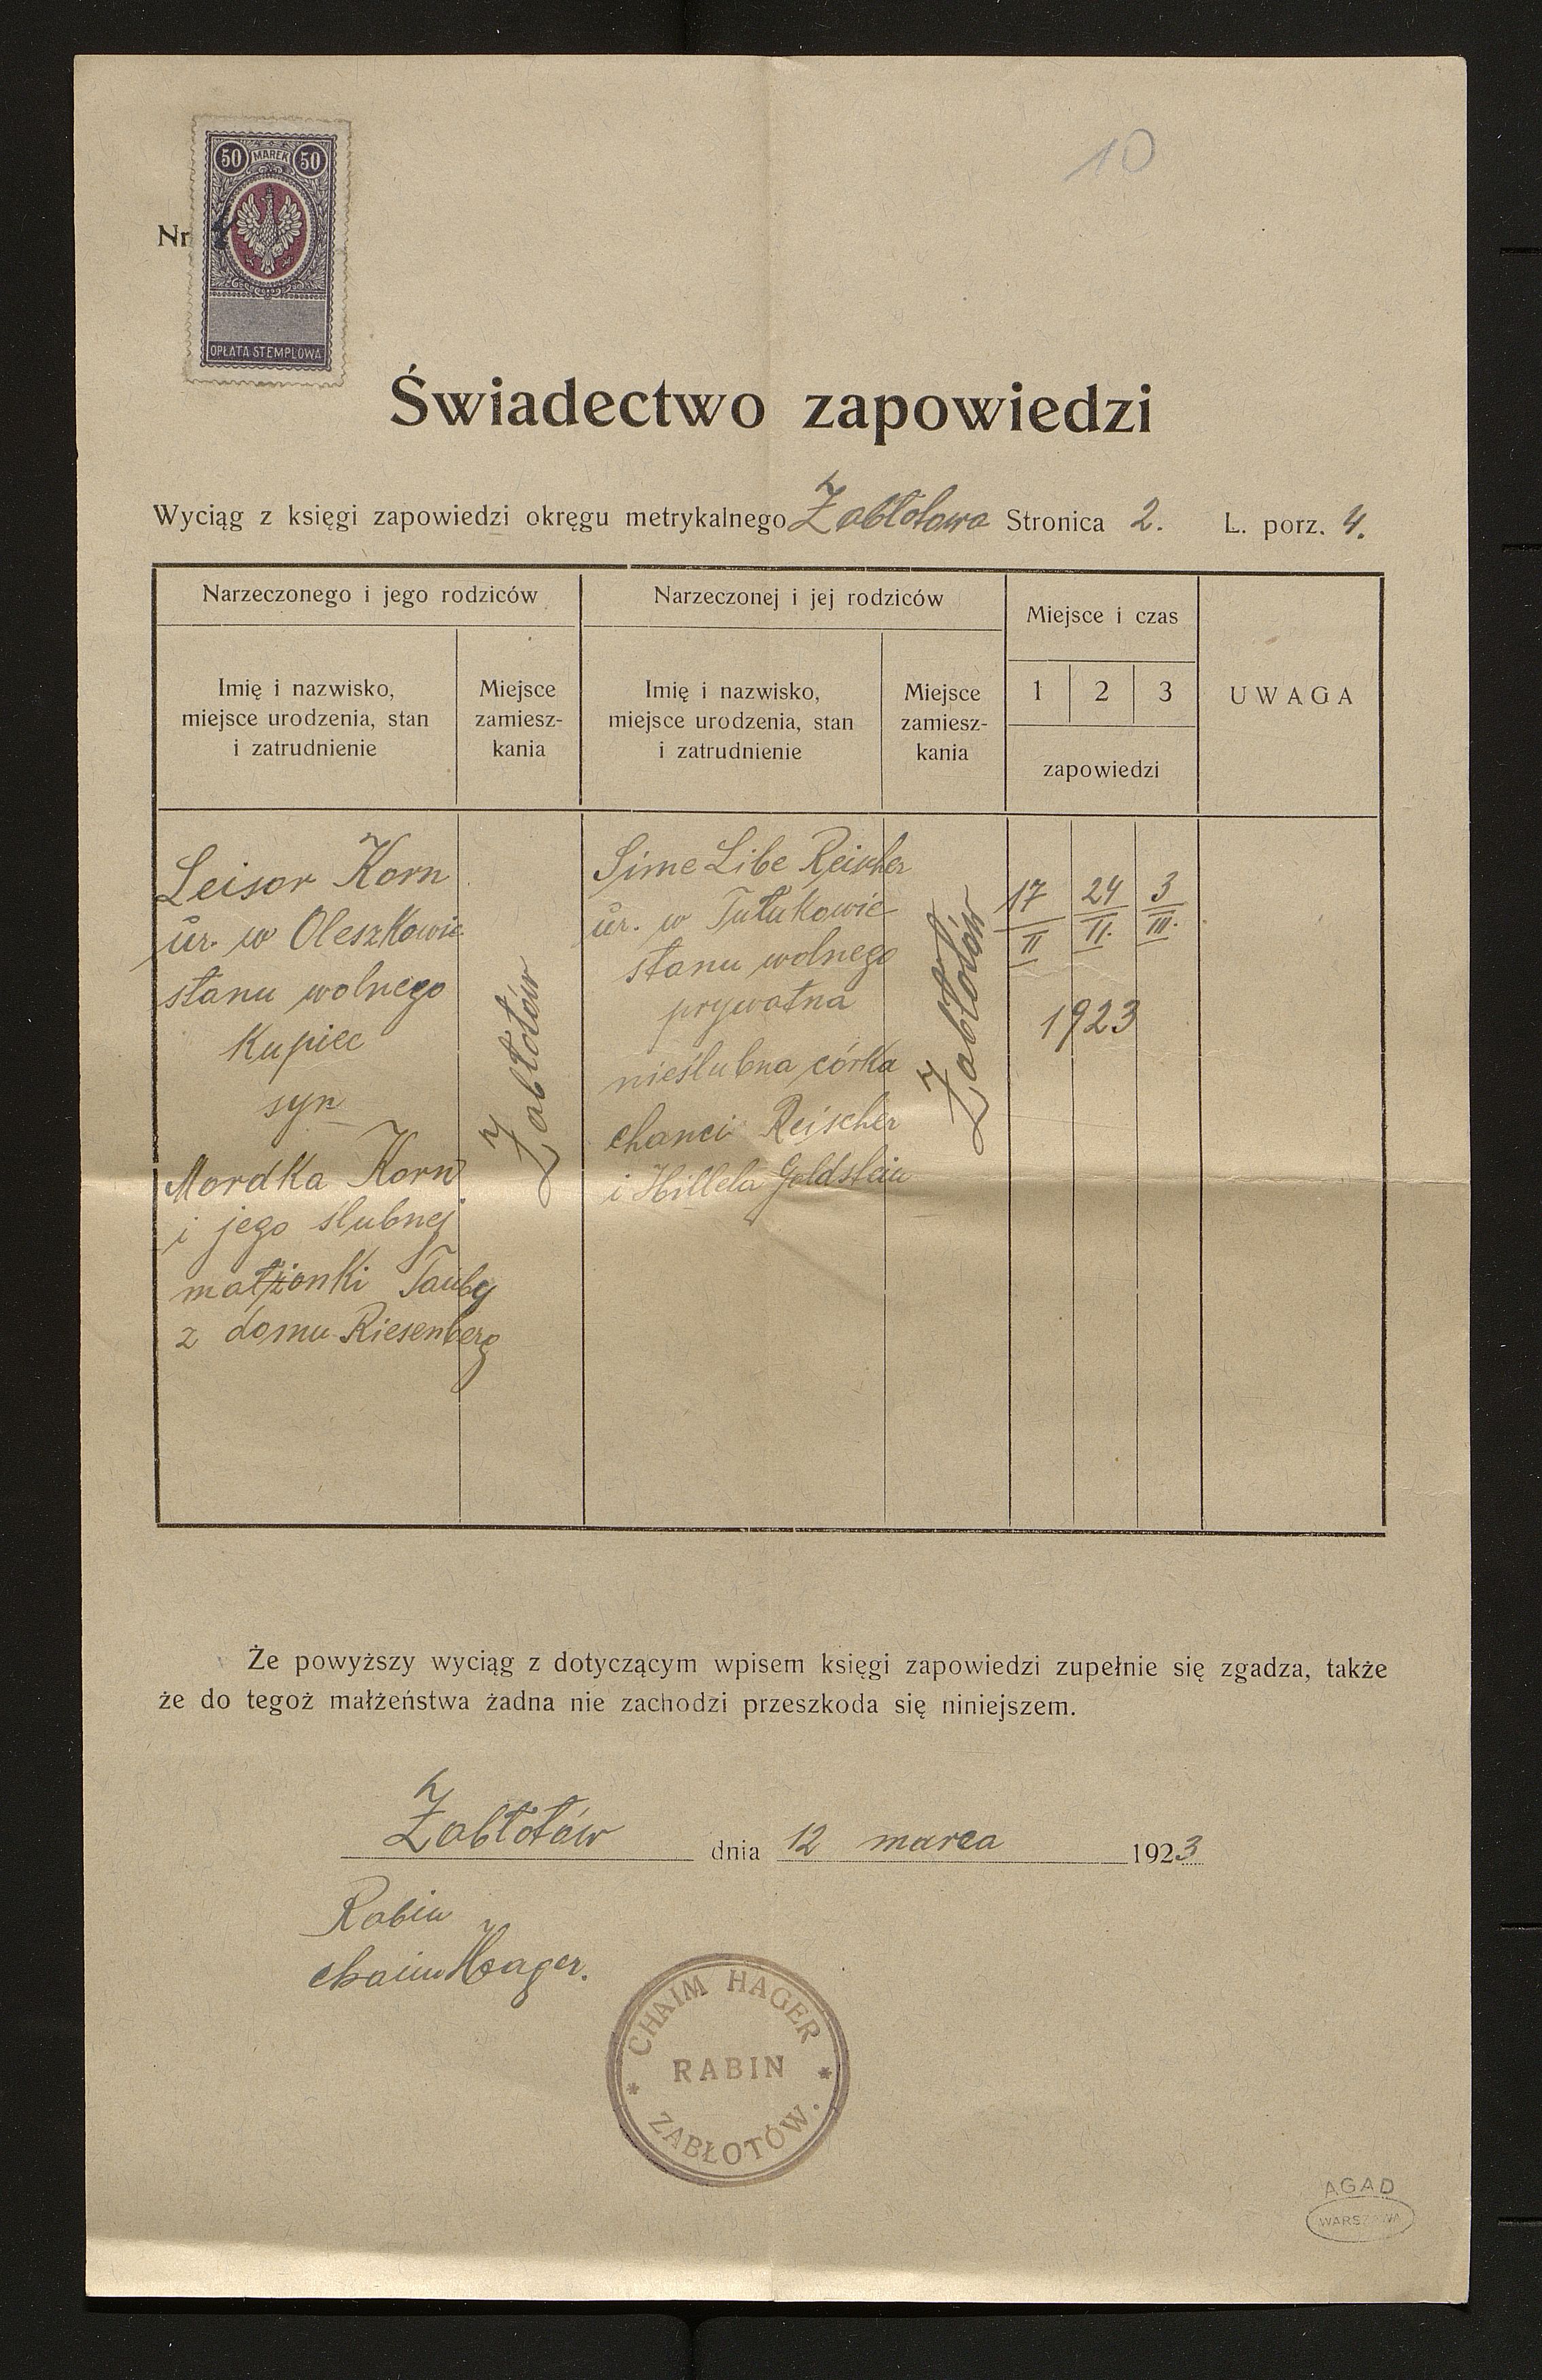 10
50 MAREK 50
Nr
OPŁATA STEMPLOWA
Świadectwo zapowiedzi
Wyciąg z księgi zapowiedzi okręgu metrykalnego Zabłotowa Stronica 2. L. porz. 4.
Narzeczonego i jego rodziców
Imię i nazwisko,
miejsce urodzenia, stan
i zatrudnienie
Miejsce
zamiesz-
kania
Narzeczonej i jej rodziców
Imię i nazwisko,
miejsce urodzenia, stan
i zatrudnienie
Miejsce
zamiesz-
kania
Miejsce i czas
1 2 3
zapowiedzi
UWAGA
Leisor Korn
ur. w Oleszkowie
stanu wolnego
kupiec
syn
Mordka Korn
i jego ślubnej
małżonki Tauby
z domu Riesenberg
Zabłotów
Sime Libe Reischer
ur. w Tułukowie
stanu wolnego
prywatna
nieślubna córka
chanci Reischer
i Hillela Goldstein
Zabłotów
17 24 3
II II. III.
1923
Że powyższy wyciąg z dotyczącym wpisem księgi zapowiedzi zupełnie się zgadza, także
że do tegoż małżeństwa żadna nie zachodzi przeszkoda się niniejszem.
Zabłotów dnia 12 marca 1923
Rabin
Chaim Hager.
CHAIM HAGER
RABIN
ZABŁOTÓW.
AGAD
WARSZAWA